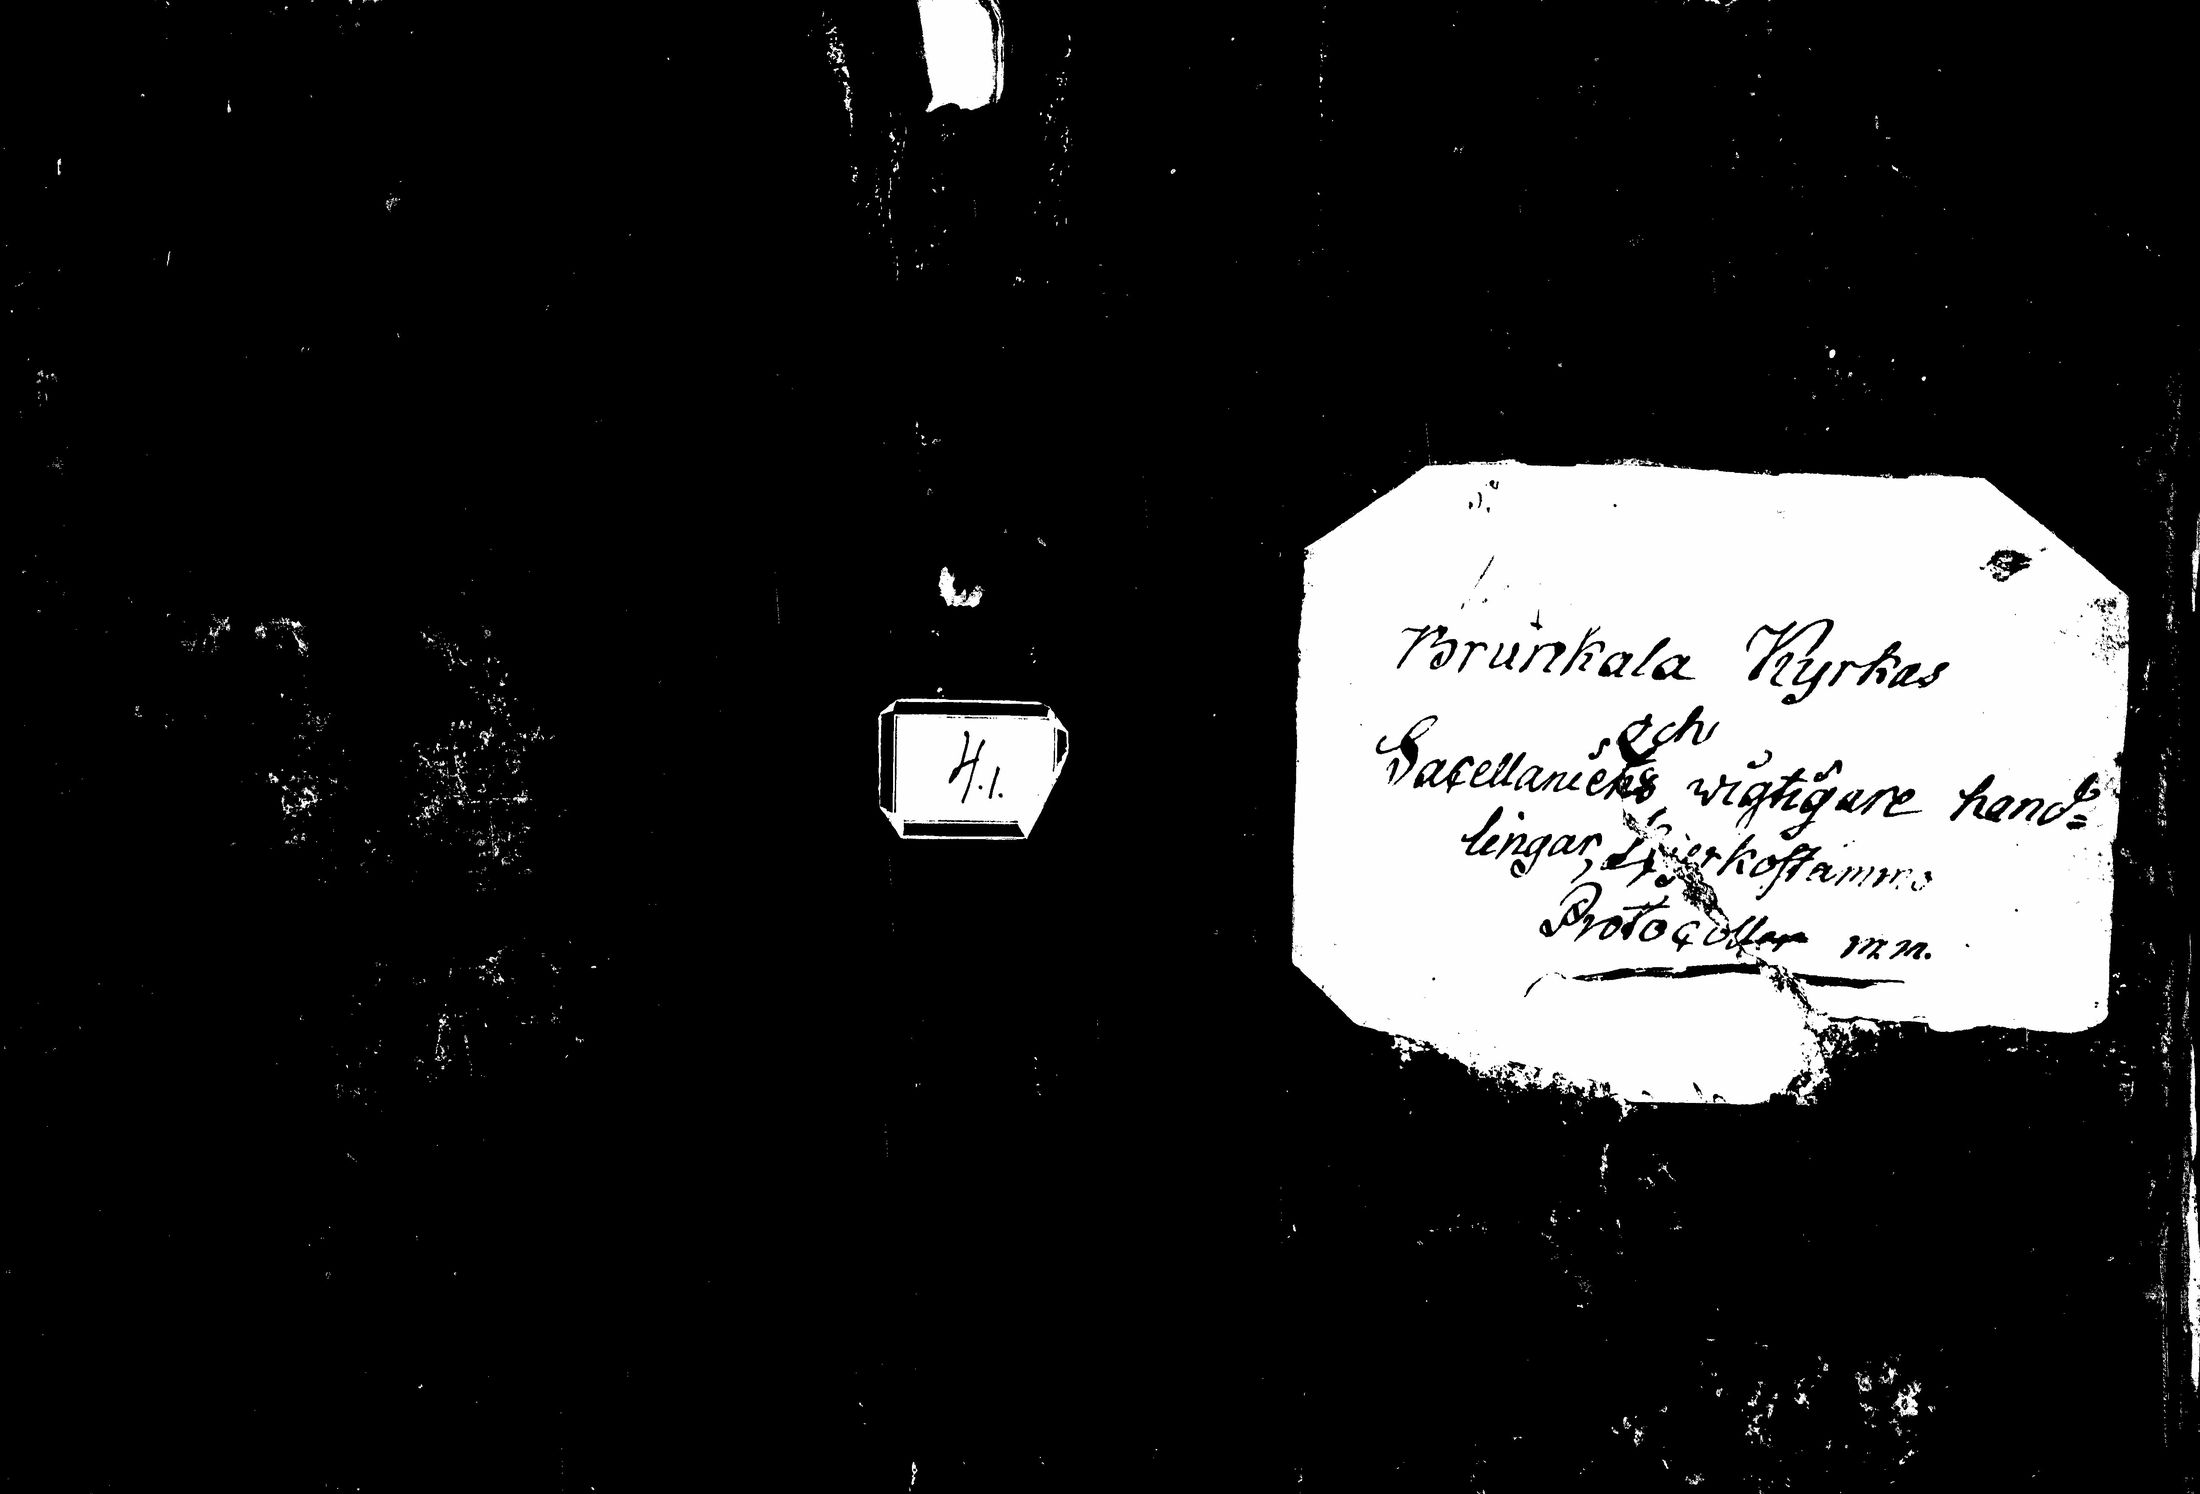 4.1.
Brunkala Kyrkas
och
Sacellaniens wigtigare hand=
lingar, Kyrkostämmo
Protocoller m m.